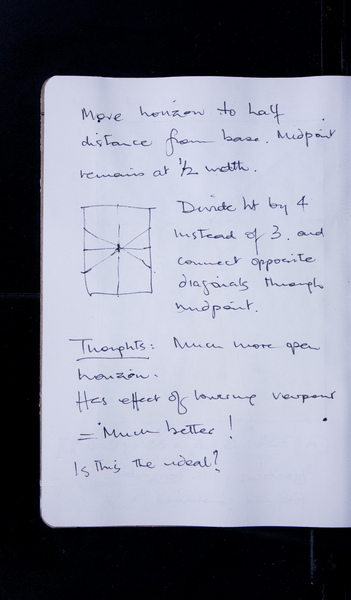 Move horizon to half
distance from base. Midpoint
remains at 1/2 width.
Divide ht by 4
instead of 3. and
connect opposite
diagonals through
midpoint.
Thoughts: Much more open
horizon.
Has effect of lowering viewpoint
= Much better!
Is this the ideal?